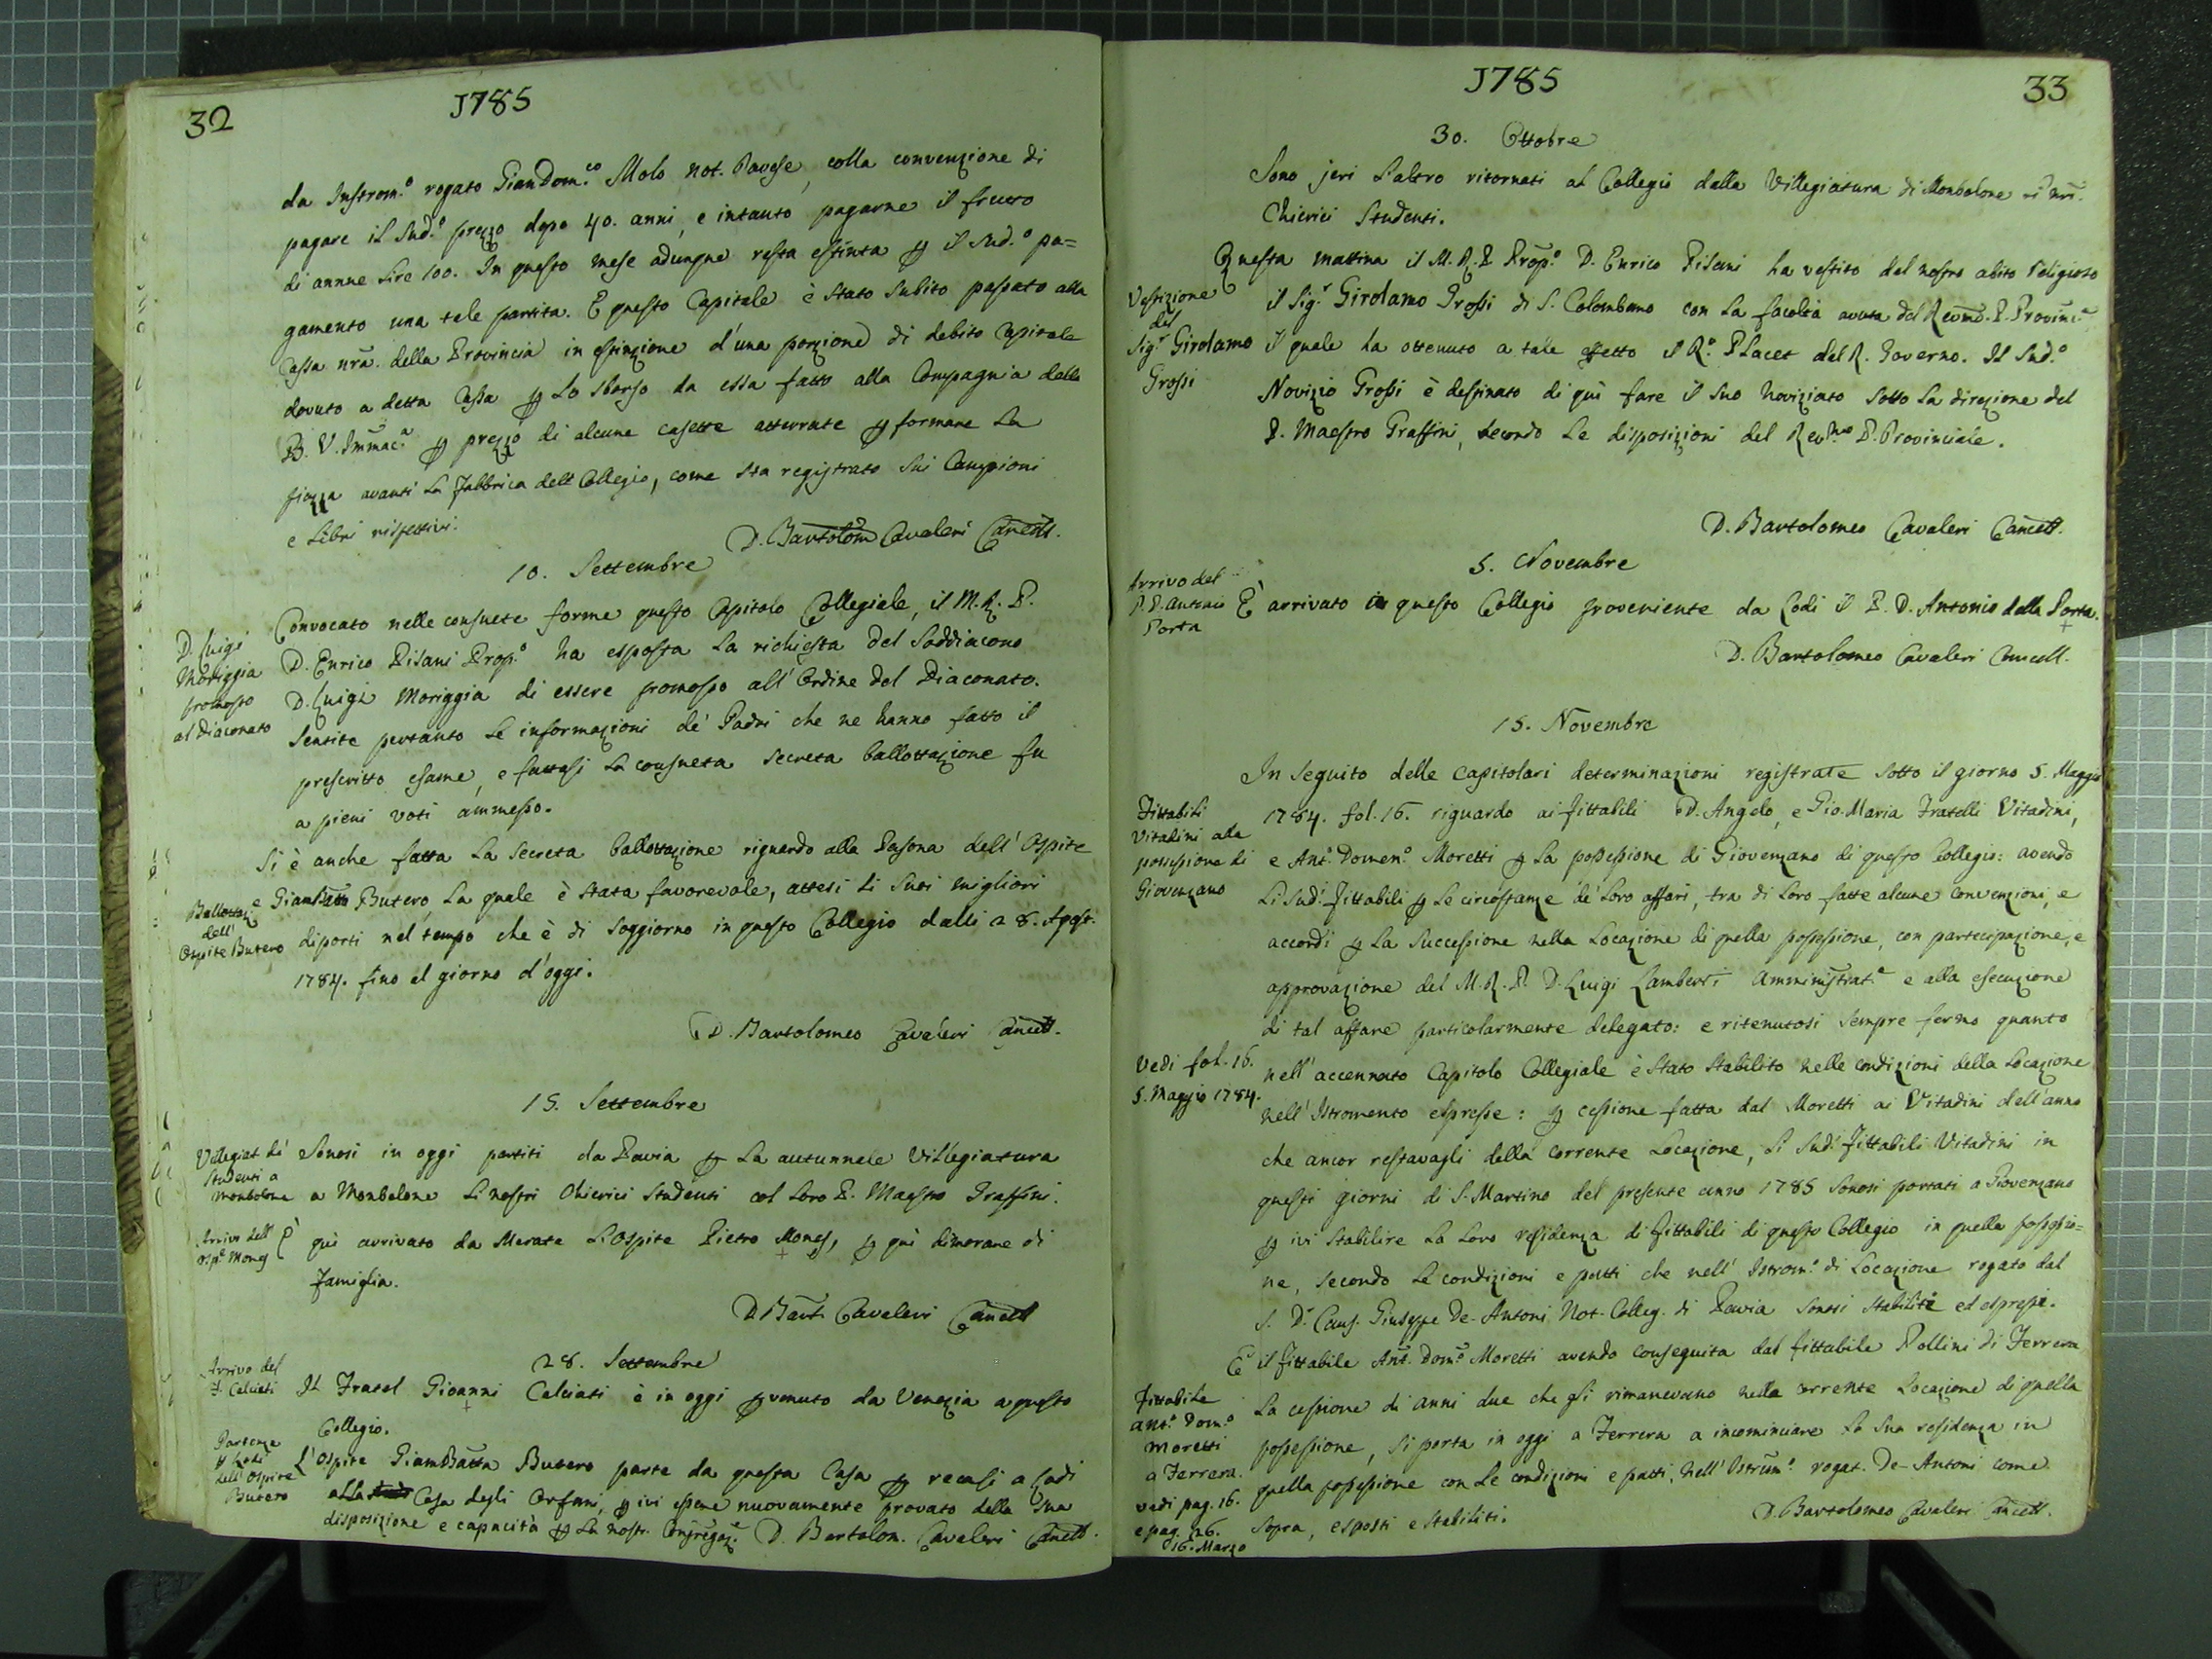 32
1785
da Instrom.º rogato GianDom.co Molo Not. Pavese, colla convenzione di
pagare il sud.º prezzo dopo 40. anni, e intanto pagarne il frutto
di annue Lire 100. In questo mese adunque resta estinta p il sud.º pa=
gamento una tale partita. E questo Capitale è stato subito passato alla
Cassa nrã. della Provincia in estinzione d'una porzione di debito Capitale
dovuto a detta Cassa p lo sborso da essa fatto alla Compagnia della
B. V. Immac.a p prezzo di alcune casette atterrate p formare la
piazza avanti la Fabbrica dell Collegio, come sta registrato sui Campioni
e Libri rispettivi.
D. Bartolom Cavaleri Cancell.
10. Settembre
D. Luigi
Moriggia
promosso
al Diaconato
Convocato nelle consuete forme questo Capitolo Collegiale, il M. R. P.
D. Enrico Pisani Prop.º ha esposta la richiesta del Soddiacono
D. Luigi Moriggia di essere promosso all'Ordine del Diaconato.
Sentite pertanto le informazioni de' Padri che ne hanno fatto il
prescritto esame, e fattasi la consueta secreta ballottazione fu
a pieni voti ammesso.
Si è anche fatta la secreta ballottazione riguardo alla Pasona dell'Ospite
Ballottaz.e
dell'
Ospite Butero
GiamBatta Butero, la quale è stata favorevole, attesi li suoi migliori
diporti nel tempo che è di soggiorno in questo Collegio dalli 28. Agost.
1784. fino al giorno d'oggi.
D. Bartolomeo Cavaleri Cancell.
15. Settembre
Villegiat. de'
Studenti a
Monbolone
Sonosi in oggi partiti da Pavia p la autunnale Villegiatura
a Monbolone li nostri Chierici Studenti col loro P. Maestro Graffini.
Arrivo dell
osp.e Mones
È quì arrivato da Merate l'Ospite Pietro Mones, p quì dimorare di
famiglia.
D. Bart. Cavaleri Cancell
28. Settembre
Arrivo del
F. Calciati
Il Fratel Gioanni Calciati è in oggi pvenuto da Venezia a questo
Collegio.
Partenza
p Lodi
dell'Ospite
Butero
L'Ospite GiamBatta Butero parte da questa Casa p recasi a Lodi
alla Casa degli Orfani, p ivi essere nuovamente provato della sua
disposizione e capacità p la nostr. Congregaz.e D. Bartolom. Cavaleri Cancell.
1785
33
30. Ottobre
Sono jeri l'altro ritornati al Collegio dalla Villegiatura di Monbolone li nrĩ.
Chierici Studenti.
Questa mattina il M. R. P. Prop.º D. Enrico Pisani ha vestito del nostro abito Religioso
Vestizione
del
Sig.r Girolamo
Grossi
il Sig.r Girolamo Grossi di S. Colombano con la facoltà avuta del Revmo. P. Provinc.e
il quale ha ottenuto a tale effetto il R.º Placet del R. Governo. Il sud.º
Novizio Grossi è destinato di quì fare il suo Noviziato sotto la direzione del
P. Maestro Graffini, secondo le disposizioni del Rev.mo P. Provinciale.
D. Bartolomeo Cavaleri Cancell.
5. Novembre
Arrivo del
P. D. Antonio
Porta
È arrivato in questo Collegio proveniente da Lodi il P. D. Antonio dalla Porta.
D. Bartolomeo Cavaleri Cancell.
15. Novembre
In seguito delle Capitolari determinazioni registrate sotto il giorno 5. Maggio
Fittabili
Vitadini alla
possessione di
Giovenzano
1784. fol. 16. riguardo ai fittabili D. Angelo, e Gio. Maria Fratelli Vitadini,
e Ant.º Domen.º Moretti p la possessione di Giovenzano di questo Collegio: avendo
li sud.i Fittabili p le circostanze de' loro affari, tra di loro fatte alcune convenzioni, e
accordi p la successione nella Locazione di quella possessione, con partecipazione, e
approvazione del M. R. P. D. Luigi Lamberti Amministrat.e e alla esecuzione
di tal affare particolarmente delegato: e ritenutosi sempre fermo quanto
Vedi fol. 16.
5. Maggio 1784.
nell'accennato Capitolo Collegiale è stato stabilito nelle condizioni della Locazione
nell'Istromento espresse: p cessione fatta dal Moretti ai Vitadini dell'anno
che ancor restavagli della corrente Locazione, li sud.i Fittabili Vitadini in
questi giorni di S. Martino del presente anno 1785 sonosi portati a Giovenzano
p ivi stabilire la loro residenza di fittabili di questo Collegio in quella possessio=
ne, secondo le condizioni e patti che nell'Istrom.º di Locazione rogato dal
S. D.r Caus. Giuseppe De-Antoni Not. Colleg. di Pavia sonosi stabilite ed espresse.
E il Fittabile Ant. Dom.º Moretti avendo conseguita dal fittabile Pollini di Ferrera
Fittabile
Ant.º Dom.º
Moretti
a Ferrera.
vedi pag. 16.
e pag. 26.
16. Marzo
la cessione di anni due che gli rimanevano nella corrente Locazione di quella
possessione, si porta in oggi a Ferrera a incominciare la sua residenza in
quella possessione con le condizioni e patti, nell'Istrum.º rogat. De-Antoni come
sopra, esposti e stabiliti.
D. Bartolomeo Cavaleri Cancell.